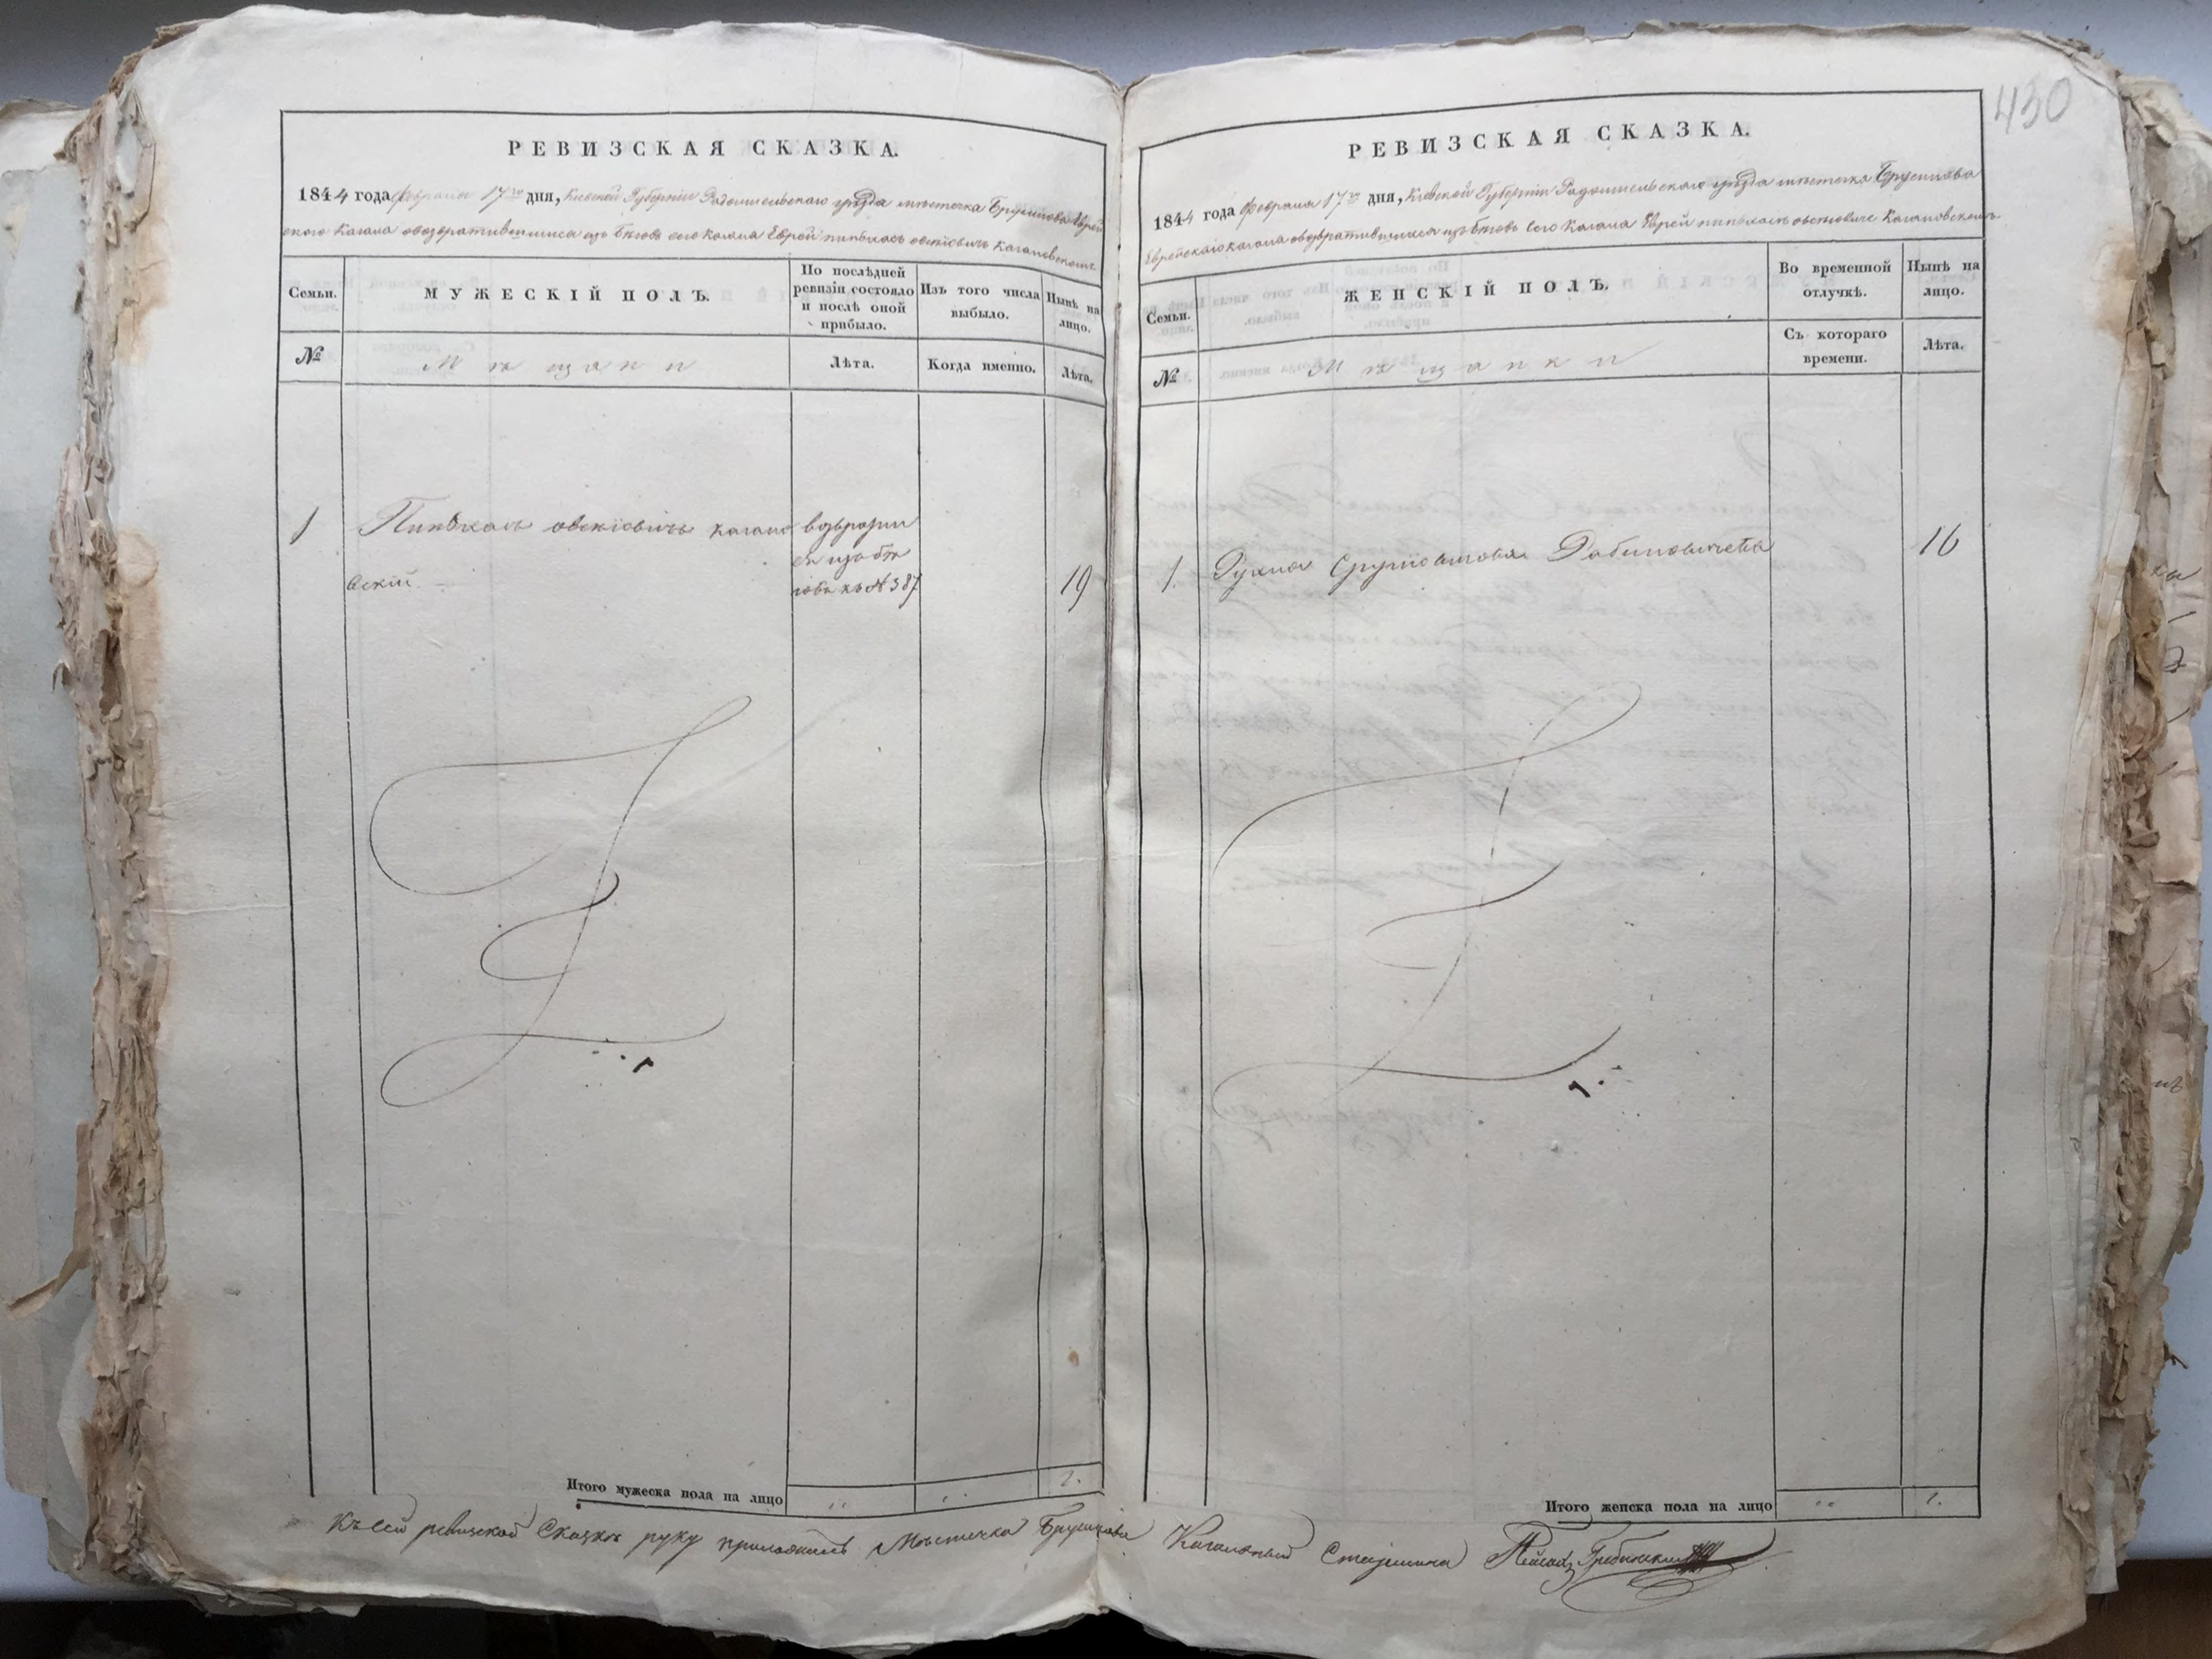 430
РЕВИЗСКАЯ СКАЗКА.
1844 года февраля 17го дня, Киевской Губерніи Радомысльскаго уѣзда мѣстечка Брусилова Еврей
скаго Кагала овозвратившимся изъ бѣговъ сего Кагала Еврей пинькасъ овсіовичъ Кагановскомъ
Семьи.
МУЖЕСКІЙ ПОЛЪ.
По послѣдней
ревизіи состояло
и послѣ оной
прибыло.
Изъ того числа
выбыло.
Нынѣ на
лицо.
№
Мѣщани
Лѣта.
Когда именно.
Лѣта.
1
Пинькасъ кагано
вскій
19
къ № 387
Итого мужеска пола на лицо
1.
РЕВИЗСКАЯ СКАЗКА.
1844 года февраля 17го дня, Кіевской Губерніи Радомысльскаго уѣзда мѣстечка Брусилова
Еврейскаго кагала овозвратившимся изъ бѣговъ сего Кагала Еврей пинькасъ Кагановскомъ
Семьи.
ЖЕНСКІЙ ПОЛЪ.
Во временной
отлучкѣ.
Нынѣ на
лицо.
№
Мѣщанки
Съ котораго
времени.
Лѣта.
1.
Рухля Рабиновичева
16
Итого женска пола на лицо
1.
Къ сей ревизской Сказкѣ руку приложилъ Мѣстечка Брусилова Кагальный Старшина